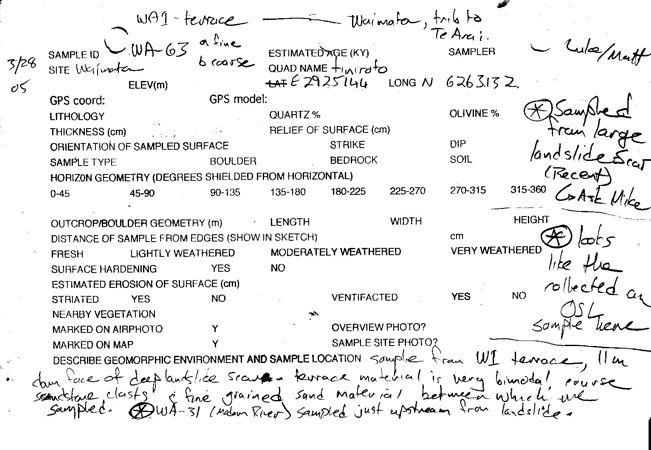 WAI-terrace — Waimata, trib to
Te Arai.
3/28
05
SAMPLE ID WA-63 a fine
b coarse
ESTIMATED AGE (KY) SAMPLER Luke/Matt
SITE Waimata QUAD NAME Tiniroto
ELEV(m) LAT E 2925144 LONG N 6263132
GPS coord: GPS model:
LITHOLOGY QUARTZ % OLIVINE %
THICKNESS (cm) RELIEF OF SURFACE (cm)
ORIENTATION OF SAMPLED SURFACE STRIKE DIP
SAMPLE TYPE BOULDER BEDROCK SOIL
HORIZON GEOMETRY (DEGREES SHIELDED FROM HORIZONTAL)
0-45 45-90 90-135 135-180 180-225 225-270 270-315 315-360
* Sampled
from large
landslide scar
(Recent)
Ask Mike
OUTCROP/BOULDER GEOMETRY (m) LENGTH WIDTH HEIGHT
DISTANCE OF SAMPLE FROM EDGES (SHOW IN SKETCH) cm
FRESH LIGHTLY WEATHERED MODERATELY WEATHERED VERY WEATHERED
SURFACE HARDENING YES NO
ESTIMATED EROSION OF SURFACE (cm)
STRIATED YES NO VENTIFACTED YES NO
NEARBY VEGETATION
MARKED ON AIRPHOTO Y OVERVIEW PHOTO?
MARKED ON MAP Y SAMPLE SITE PHOTO?
* looks
like the
collected an
OSL
sample here
DESCRIBE GEOMORPHIC ENVIRONMENT AND SAMPLE LOCATION sample from WI terrace, 11m
down face of deep landslide scar terrace material is very bimodal, course
sandstone clasts & fine grained sand material between which we
sampled. * WA-31 (River) sampled just upstream from landslide.